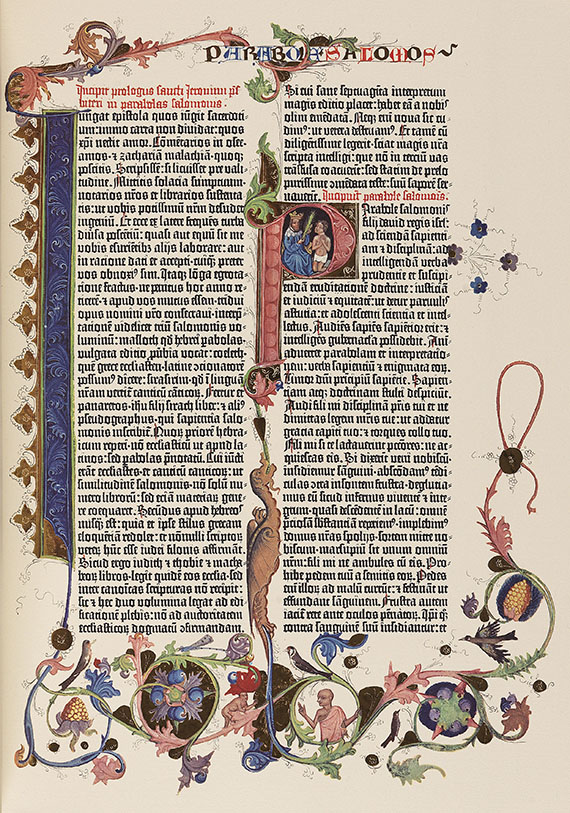 PARABOLE SALOMOIS
Incipit prologus sancti Jeronimi
in parabolas salomonis.
Iungat epistola quos iūgit sacerdoti-
um: immo carta non diuidat: quos
xp̄i nectit amor. Cōmētarios in osee-
amos ⁊ zachariam malachiā-quoq;
poscitis. Scripsissē: si licuisset pre vali-
tudine. Mittitis solacia sumptuum-
notarios nr̄os et librarios sustenta-
tis: ut vobis potissimū nr̄m desudet
ingeniū. Et ecce ex latere frequēs turba
diuersa poscentiū: quasi aut equū sit me
vobis esurientib; alijs laborare: aut
in ratione dati et accepti-cuiq; preter
vos obnoxiꝰ sim. Itaq; lōga egrotati-
one fractus-ne penitus hoc anno re-
ticerē-⁊ apud vos mutus essem-tridui
opus nomini vr̄o consecraui-interp̄-
tationē videlicet triū salomonis vo-
luminū: masloth
vulgata editio
eccl̄asten latine
possumꝰ dicere: sirasirim-qđ ī linguā
nr̄am vertit̄ canticū canticoꝝ. Fertur et
panaretos-ihu filij sirach liber: ⁊ aliꝰ
pseudographus-qui sapientia salo-
monis inscribit̄. Quoꝝ priorē hebra-
icum reperi-nō eccl̄asticū ut apud lati-
nos: sed pabolas p̄notatū. Cui iūcti
erāt eccl̄astes-et canticū canticoꝝ: ut
similitudinē salomonis-nō solū nu-
mero libroꝝ: sed etiā materiaꝝ gene-
re coequaret. Secūdus apud hebreos
nusq̄ est: quia et ipse stilus grecam
eloquētiā redolet: et nōnulli scriptoꝝ
veteꝝ hūc esse iudei filonis affirmāt.
Sicut ergo iudith ⁊ thobie ⁊ macha-
beoꝝ libros-legit quidē eos eccl̄ia-sed
inter canonicas scripturas nō recipit:
sic ⁊ hec duo volumina legat ad edi-
ficationē plebis: nō ad auctoritatem
eccl̄asticoꝝ dogmatū ꝯfirmandam.
Si cui sane septuagīta interpretum
magis editio placet: habet eā a nobis
olim emēdatā. Neq; eni noua sic cu-
dimꝰ: ut vetera destruamꝰ. Et tamē cū
diligētissime legerit-sciat magis nr̄a
scripta intelligi: que nō in terciū vas
trāsfusa coacuerit: sed statim de prelo
purissime ꝯmēdata teste: suū saporē ser-
uauerit. Incipiūt parabole salomonis.
Parabole salomonis
filij dauid regis isrl̄:
ad sciendā sapienti-
am ⁊ disciplinā: ad
intelligendā verba
prudentie et suscipi-
endā eruditationē doctrine: iusticiam
et iudiciū ⁊ equitatē: ut detur paruulis
astutia: et adolescenti scientia et intel-
lectus. Audiēs sapiēs sapiētior erit: ⁊
intelligēs gubernacla possidebit. Ani-
aduertet parabolam et interpretatio-
nem: verba sapientiū ⁊ enigmata eoꝝ.
Timor dn̄i principiū sapiētie. Sapien-
tiam atq; doctrinam stulti despiciūt.
Audi fili mi disciplinā pr̄is tui et ne
dimittas legem mr̄is tue: ut addatur
gratia capiti tuo: ⁊ torques collo tuo.
Fili mi si te lactauerint pctōres: ne ac-
quiescas eis. Si dixerit veni nobiscū-
insidiemur sāguini-abscōdamꝰ tedi-
culas ɔtra insontem frustra-deglutia-
mus eū sicut infernus viuente ⁊ inte-
grum-quasi descēdentē in lacū: omnē
p̄ciosā substanciā reperiemꝰ-implebimꝰ
domus nr̄as spolijs-sortem mitte no-
biscum-marsupiū sit vnum omniū
nr̄um: fili mi ne ambules cū eis. Pro-
hibe pedem tuū a semitis eoꝝ. Pedes
eni illoꝝ ad malū currūt: ⁊ festināt ut
effundant sāguinem. Frustra autem
iacit̄ rete ante oculos pēnatoꝝ. Ipi q;
contra sanguinē suū insidiantur: et